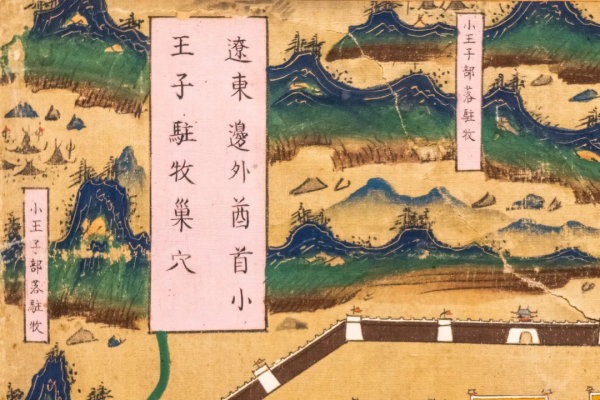 小王子部落駐牧
遼東邊外酋首小
王子駐牧巢穴
小王子部落駐牧